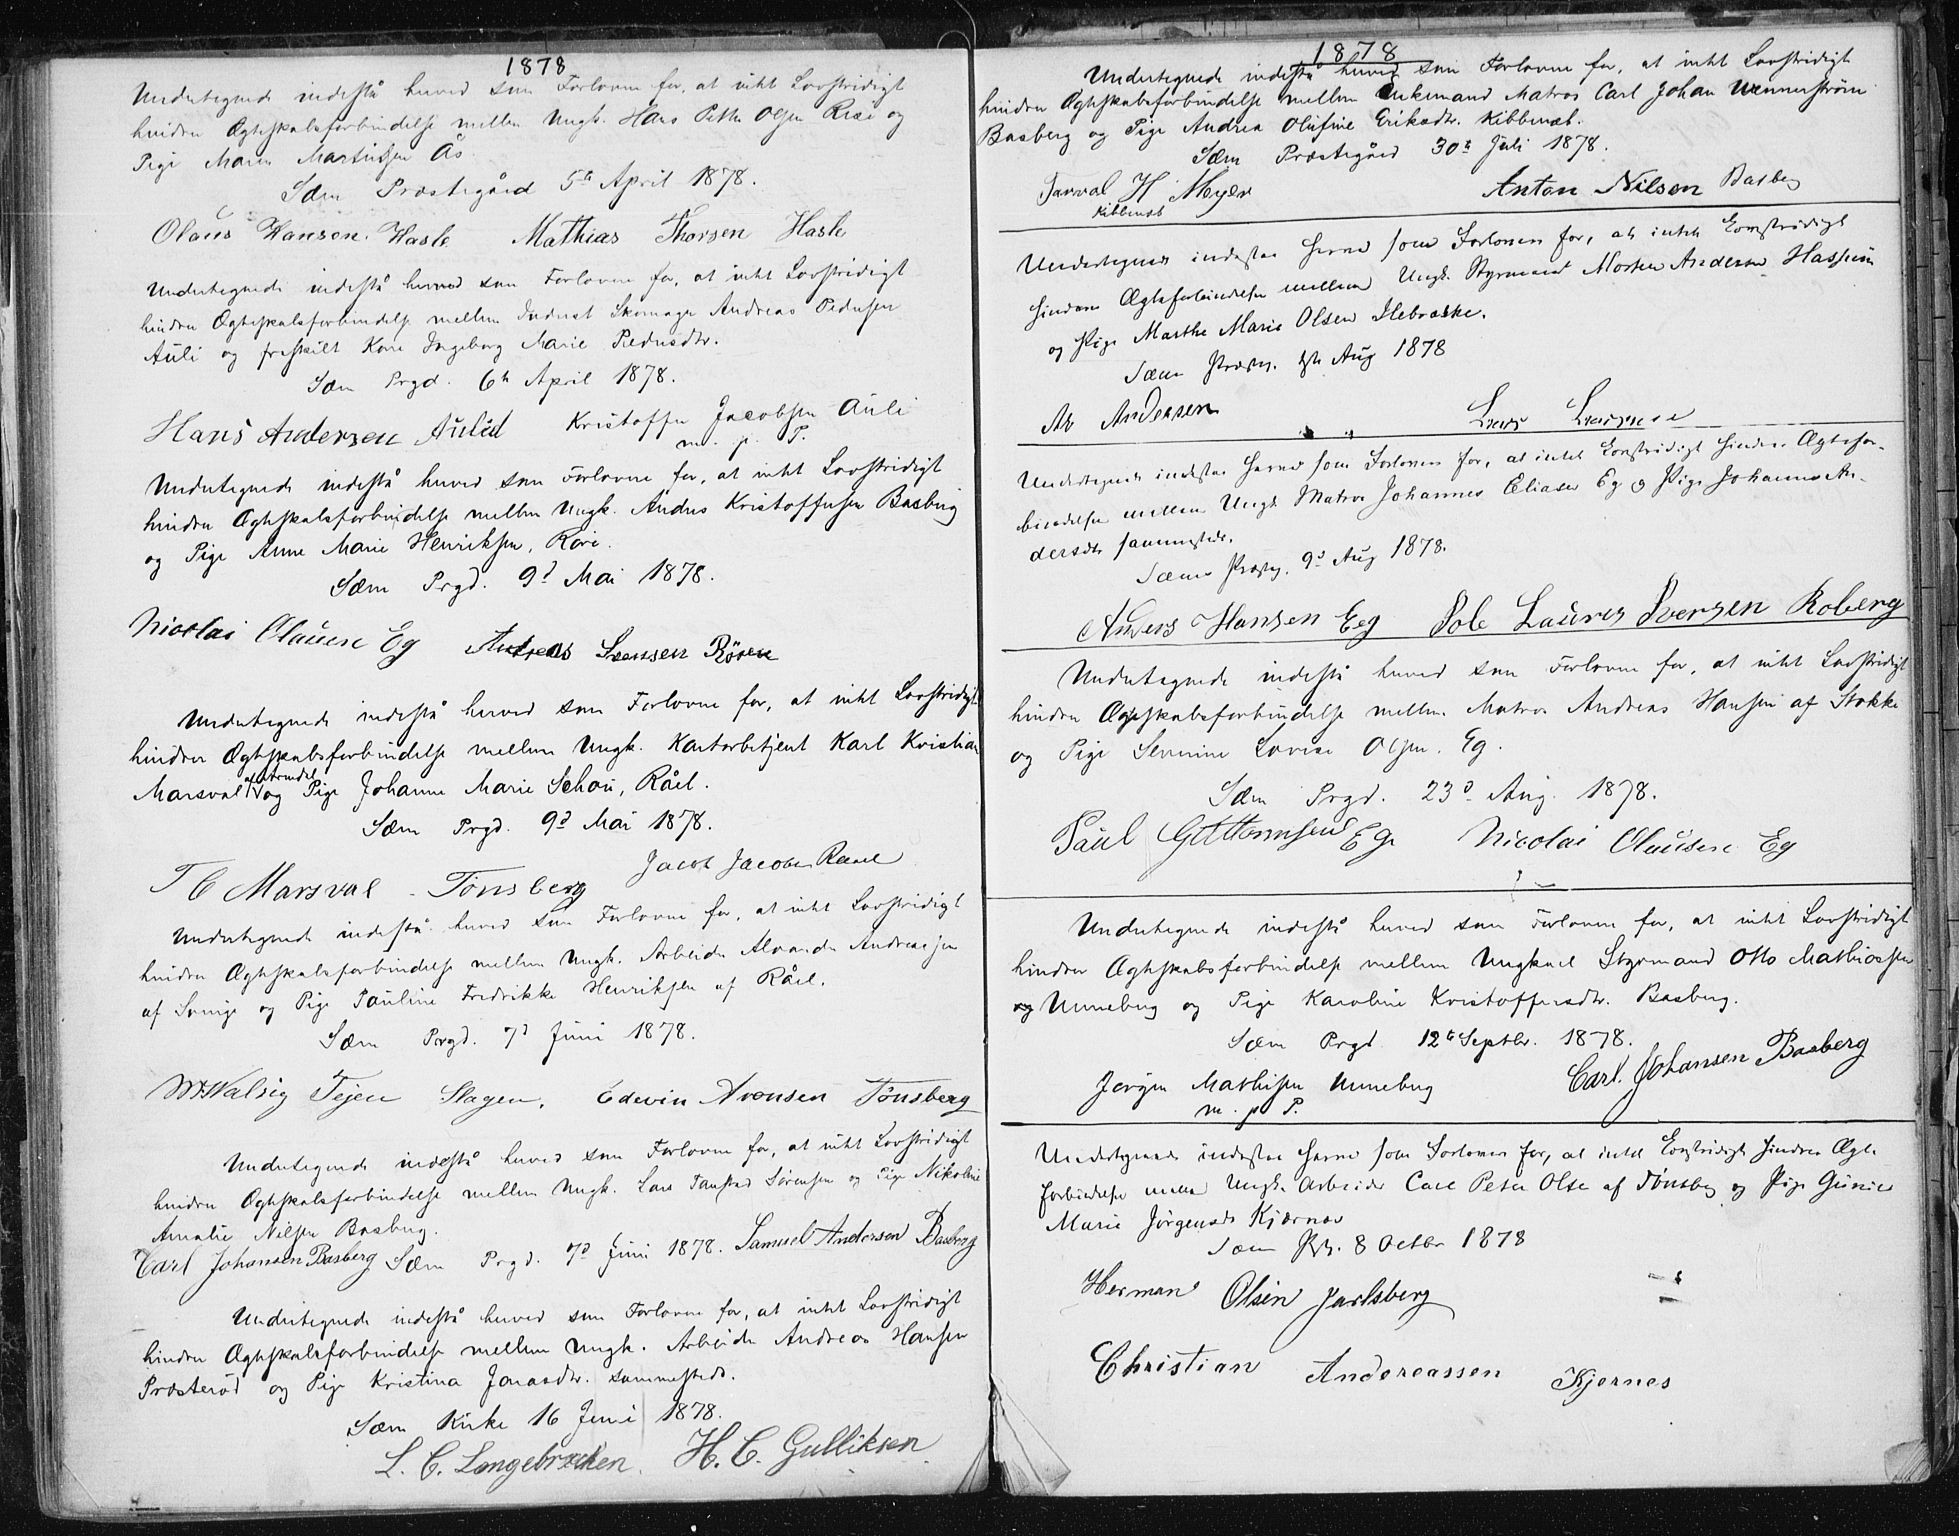 1878
Undertegnede indestå herved som Forlovere for, at intet Lovstridigt
hindrer Ægteskabsforbindelse mellem Ungk. Hans Petter Olsen Røse og
Pige Maren Martinsen Ås
Sæm Præstegård 5te April 1878.
Olaus Hansen Hasle Mathias Thorsen Hasle
Undertegnede indestå herved som Forlovere for, at intet Lovstridigt
hindrer Ægteskabsforbindelse mellem Skomager Andreas Pedersen
Auli og fraskilt Kone Ingeborg Marie Pedersdtr.
Sæm Prgd. 6te April 1878.
Hans Andersen Aulie Kristoffer Jacobsen Auli
m. p. P.
Undertegnede indestå herved som Forlovere for, at intet Lovstridigt
hindrer Ægteskabsforbindelse mellem Ungk. Anders Kristoffersen Basberg
og Pige Anne Marie Henriksen, Røre.
Sæm Prgd. 9d Mai 1878.
Nicolai Olausen Eg Andreas Svensen Rören
Undertegnede indestå herved som Forlovere for, at intet Lovstridigt
hindrer Ægteskabsforbindelse mellem Ungk. Karl Kristian
Marsval og Pige Johanne Marie Schou, Råel.
Sæm Prgd. 9d Mai 1878.
T C Marsval Tönsberg Jacob Jacobsen Raael
Undertegnede indestå herved som Forlovere for, at intet Lovstridigt
hindrer Ægteskabsforbindelse mellem Ungk. Arbeider Andreassen
af Sverige og Pige Pauline Fredrikke Henriksen af Råel.
Sæm Prgd. 7d Juni 1878.
Tejen Slagen. Edevin Arensen Tönsberg
Undertegnede indestå herved som Forlovere for, at intet Lovstridigt
hindrer Ægteskabsforbindelse mellem Ungk. Lars Sørensen og Pige Nikoline
Amalie Nilsen Basberg.
Carl Johansen Basberg Sæm Prgd. 7d Juni 1878. Samuel Andersen Basberg
Undertegnede indestå herved som Forlovere for, at intet Lovstridigt
hindrer Ægteskabsforbindelse mellem Ungk. Arbeider Andreas Hansen
Præsterød og Pige Kristina Jonasdtr. sammesteds.
Sæm Kirke 16 Juni 1878.
L. C. Langebrækken. H. C. Gulliksen
1878
Undertegnede indestå herved som Forlovere for, at intet Lovstridigt
hindrer Ægteskabsforbindelse mellem Enkemand Matros Carl Johan Wennerstrøm
Basberg og Pige Andrea Olufine Eriksdtr. Kibbenæs.
Sæm Præstegård 30te Juli 1878.
H Meyer Anton Nilsen Basberg
Kibbenæs
Undertegnede indestaa herved som Forlovere for, at intet Lovstridigt
hindrer Ægteforbindelse mellem Ungk. Styrmand Morten Andersen Hassum
og Pige Marthe Marie Olsen Ilebrække.
Sæm Aug 1878
Andersen
Undertegnede indestaa herved som Forlovere for, at intet Lovstridigt hindrer Ægtefor-
bindelse mellem Ungk. Matros Johannes Eliasen Eg og Pige Johanne An-
dersdtr sammesteds.
Sæm Præstg. 9d Aug 1878.
Anders Hansen Eeg Sole Laures Iversen Roberg
Undertegnede indestå herved som Forlovere for, at intet Lovstridigt
hindrer Ægteskabsforbindelse mellem Matros Andreas Hansen af Stokke
og Pige Severine Lovise Olsen. Eg.
Sæm Prgd. 23d Aug. 1878.
Paul Guttormsen Eg Nicolai Olausen Eg
Undertegnede indestå herved som Forlovere for, at intet Lovstridigt
hindrer Ægteskabsforbindelse mellem Ungkarl Styrmand Otto Mathiassen
Unneberg og Pige Karoline Kristoffersdtr. Basberg.
Sæm Prgd. 12te Septbr. 1878.
Jørgen Mathisen Unneberg Carl Johansen Basberg
m. p P.
Undertegnede indestaa herved som Forlovere for, at intet Lovstridigt hindrer Ægte
forbindelse mellem Ungk. Arbeider Carl Peter Olsen af Tønsberg og Pige
Marie Jörgensdtr Kjærnæs
Sæm 8 Octbr 1878
Herman Olsen Jarlsberg
Christian Andereassen Kjernes